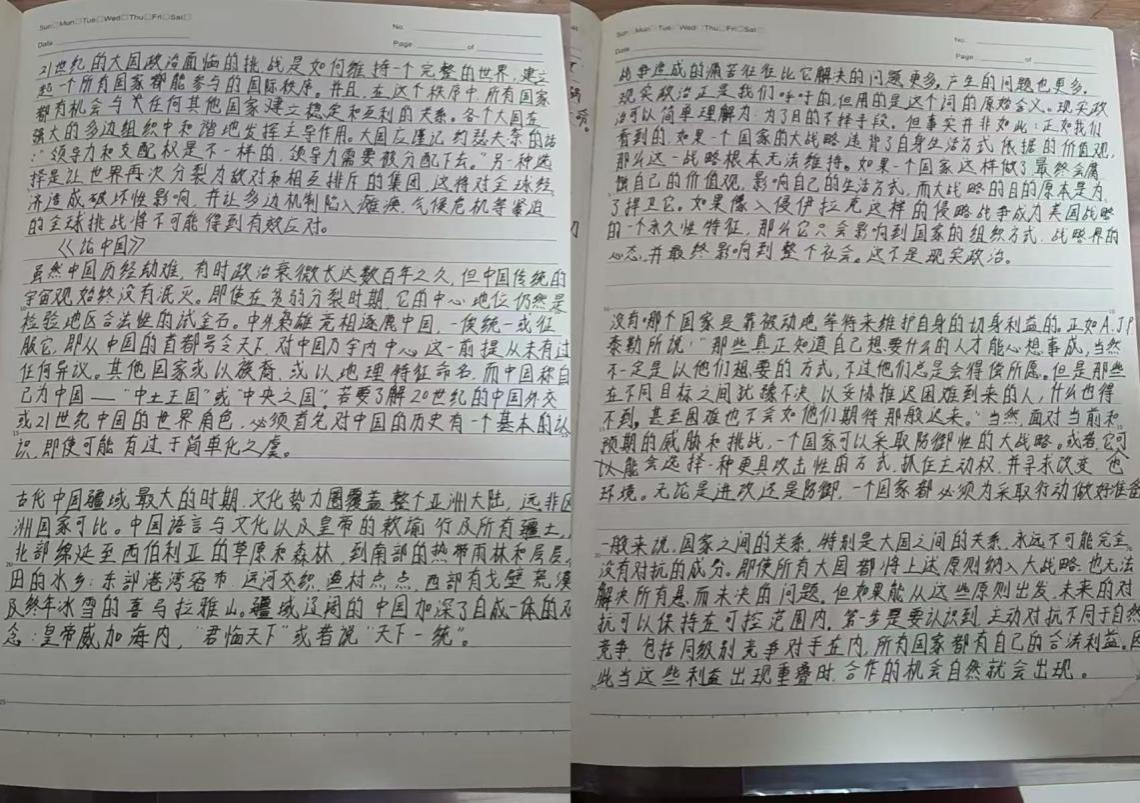 Sun Mon Tue Wed Thu Fri Sat
No.
Date
Page of
21世纪的大国政治面临的挑战是如何维持一个完整的世界,建立
起一个所有国家都能参与的国际秩序。并且,在这个秩序中,所有国家
都有机会与任何其他国家建立稳定和互利的关系。各个大国在
强大的多边组织中和谐地发挥主导作用。大国应谨记约瑟夫·奈的话
:“领导力和支配权是不一样的,领导力需要被分配下去。”另一种选
择是让世界再次分裂为敌对和相互排斥的集团,这将对全球经
济造成破坏性影响,并让多边机制陷入瘫痪,气候危机等紧迫
的全球挑战将不可能得到有效应对。
《论中国》
虽然中国历经劫难,有时政治衰微长达数百年之久,但中国传统的
宇宙观始终没有泯灭。即使在贫弱分裂时期,它的中心地位仍然是
检验地区合法性的试金石。中外枭雄竞相逐鹿中国,一俟统一或征
服它,即从中国的首都号令天下,对中国乃宇内中心这一前提从未有过
任何异议。其他国家或以族裔,或以地理特征命名,而中国称自
己为中国——“中土王国”或“中央之国”。若要了解20世纪的中国外交
或21世纪中国的世界角色,必须首先对中国的历史有一个基本的认
识,即使可能有过于简单化之虞。
古代中国疆域最大的时期,文化势力圈覆盖整个亚洲大陆,远非欧
洲国家可比。中国语言与文化以及皇帝的敕谕行及所有疆土,
北部绵延至西伯利亚的草原和森林,到南部的热带雨林和层层
田的水乡;东部港湾密布,运河交织,渔村点点,西部有戈壁荒漠
及终年冰雪的喜马拉雅山。疆域辽阔的中国加深了自成一体的观
念:皇帝威加海内,“君临天下”或者说“天下一统”。
Sun Mon Tue Wed Thu Fri Sat
No.
Date
Page of
战争造成的痛苦往往比它解决的问题更多,产生的问题也更多。
现实政治正是我们呼吁的,但用的是这个词的原始含义。现实政
治可以简单理解为:为了目的不择手段。但事实并非如此:正如我们
看到的,如果一个国家的大战略违背了自身生活方式依据的价值观,
那么这一战略根本无法维持。如果一个国家这样做了,最终会腐
蚀自己的价值观,影响自己的生活方式,而大战略的目的原本是为
了捍卫它。如果像入侵伊拉克这样的侵略战争成为美国战略
的一个永久性特征,那么它只会影响到国家的组织方式、战略界的
心态,并最终影响到整个社会。这不是现实政治。
没有哪个国家是靠被动地等待来维护自身的切身利益的。正如A.J.P.
泰勒所说:“那些真正知道自己想要什么的人才能心想事成,当然
不一定是以他们想要的方式,不过他们总是会得偿所愿。但是那些
在不同目标之间犹豫不决,以妥协推迟困难到来的人,什么也得
不到,甚至困难也不会如他们期待那般迟来。”当然,面对当前和
预期的威胁和挑战,一个国家可以采取防御性的大战略。或者,它可
能会选择一种更具攻击性的方式,抓住主动权,并寻求改变
环境。无论是进攻还是防御,一个国家都必须为采取行动做好准备
一般来说,国家之间的关系,特别是大国之间的关系,永远不可能完全
没有对抗的成分。即使所有大国都将上述原则纳入大战略,也无法
解决所有悬而未决的问题,但如果能从这些原则出发,未来的对
抗可以保持在可控范围内。第一步是要认识到,主动对抗不同于自然
竞争,包括同级别竞争对手在内,所有国家都有自己的合法利益。因
此当这些利益出现重叠时,合作的机会自然就会出现。